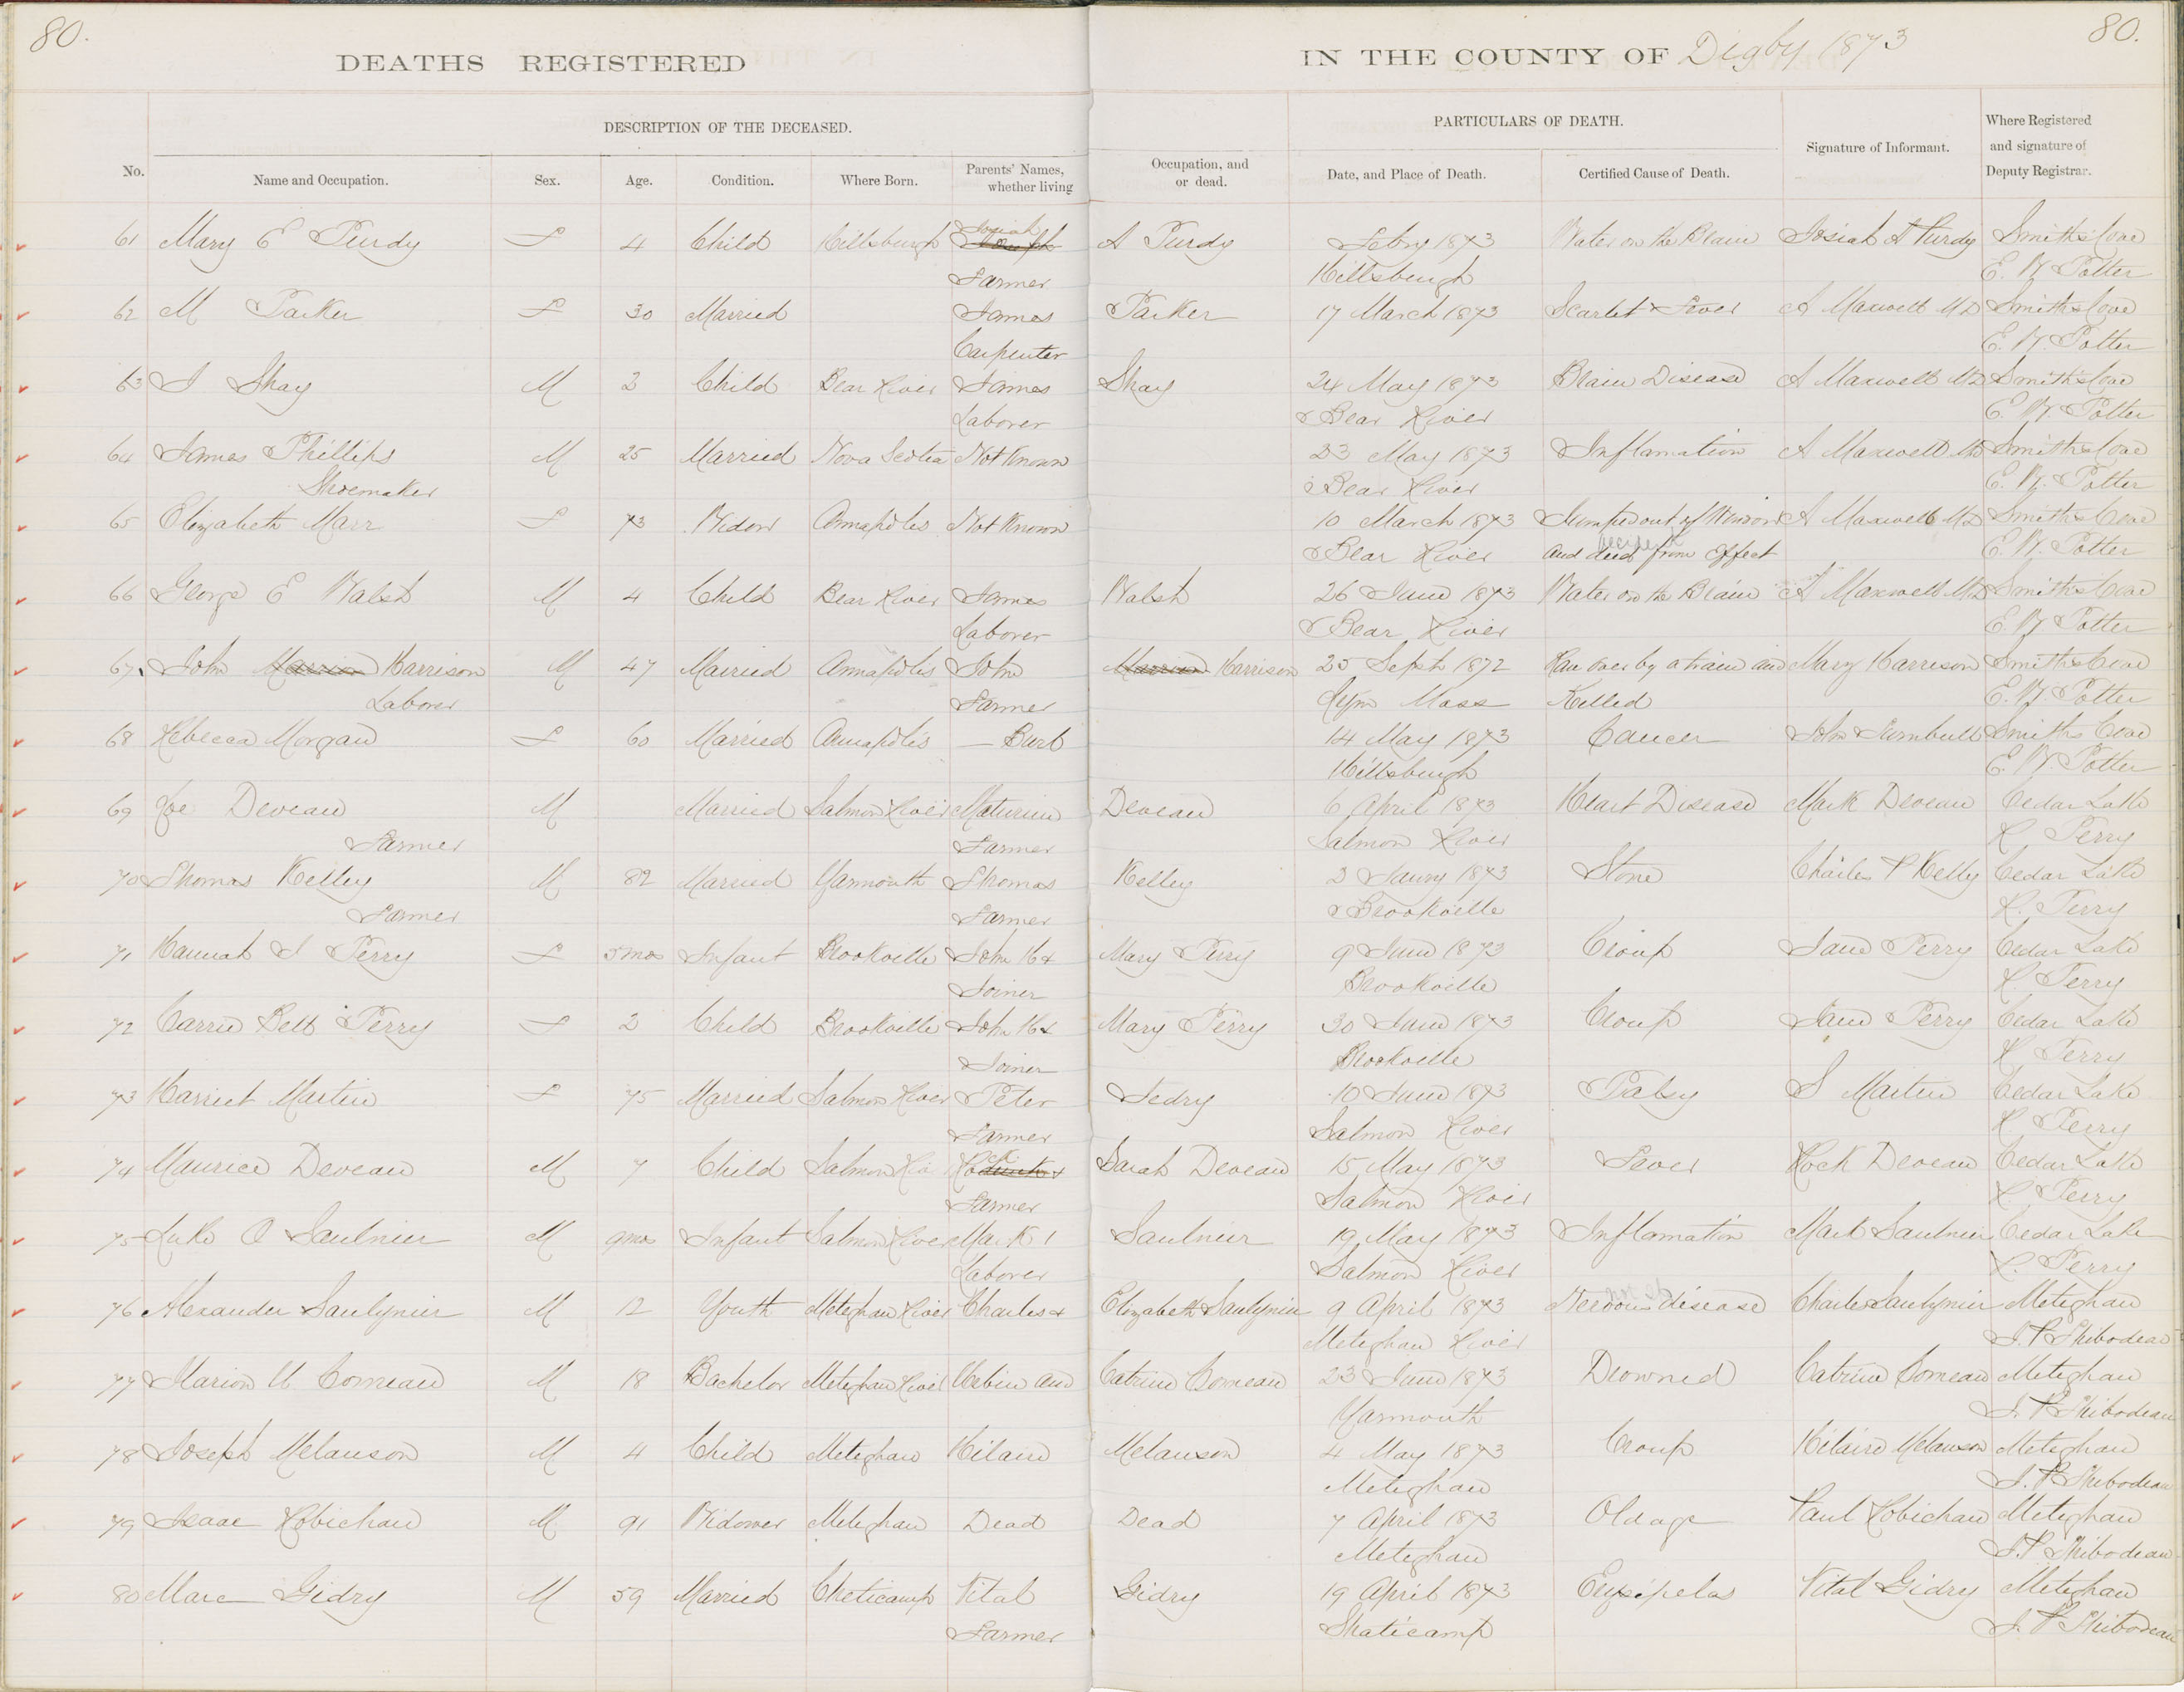 80. 80.
DEATHS REGISTERED IN THE COUNTY OF Digby 1873
DESCRIPTION OF THE DECEASED. PARTICULARS OF DEATH.
No. Name and Occupation. Sex. Age. Condition. Where Born. Parents' Names, whether living Occupation, and or dead. Date, and Place of Death. Certified Cause of Death. Signature of Informant. Where Registered and signature of Deputy Registrar.
61 Mary E Purdy F 4 Child Hillsburgh Josiah A Purdy Febry 1873 Water on the Brain Josiah A Purdy Smiths Cove
Farmer Hillsburgh E. W. Potter
62 M Parker F 30 Married James Parker 17 March 1873 Scarlet Fever A Maxwell MD Smiths Cove
Carpenter E. W. Potter
63 J Shay M 2 Child Bear River James Shay 24 May 1873 Brain Disease A Maxwell MD Smiths Cove
Laborer Bear River E. W. Potter
64 James Phillips M 25 Married Nova Scotia Not Known 23 May 1873 Inflamation A Maxwell MD Smiths Cove
Shoemaker Bear River E. W. Potter
65 Elizabeth Marr F 73 Widow Annapolis Not Known 10 March 1873 Jumped out of Window A Maxwell MD Smiths Cove
Bear River and died from Effect E. W. Potter
66 George E Walsh M 4 Child Bear River James Walsh 26 June 1873 Water on the Brain A Maxwell MD Smiths Cove
Laborer Bear River E. W. Potter
67 John Harrison M 47 Married Annapolis John Harrison 25 Sepht 1872 Ran over by a train and Mary Harrison Smiths Cove
Laborer Farmer Lynn Mass Killed E. W. Potter
68 Rebecca Morgan F 60 Married Annapolis — Burb 14 May 1873 Cancer John Turnbull Smiths Cove
Hillsburgh E. W. Potter
69 Joe Deveau M Married Salmon River Maturin Deveau 6 April 1873 Heart Disease Mark Deveau Cedar Lake
Farmer Farmer Salmon River R Perry
70 Thomas Kelley M 82 Married Yarmouth Thomas Kelley 2 Jauny 1873 Stone Charles P Kelly Cedar Lake
Farmer Farmer Brookville R. Perry
71 Hannah J Perry F 5 mos Infant Brookville John H & Mary Perry 9 June 1873 Croup Jane Perry Cedar Lake
Joiner Brookville R Perry
72 Carrie Bell Perry F 2 Child Brookville John H & Mary Perry 30 June 1873 Croup Jane Perry Cedar Lake
Joiner Brookville R Perry
73 Harriet Martin F 75 Married Salmon River Peter Jedry 10 June 1873 Palsy S Martin Cedar Lake
Farmer Salmon River R Perry
74 Maurice Deveau M 7 Child Salmon Riv Rock & Sarah Deveau 15 May 1873 Fever Rock Deveau Cedar Lake
Farmer Salmon River R. Perry
75 Luke O Saulnier M 9 mos Infant Salmon River Mark I Saulnier 19 May 1873 Inflamation Mark Saulnier Cedar Lake
Laborer Salmon River R. Perry
76 Alexander Saulynier M 12 Youth Meteghan River Charles & Elizabeth Saulynier 9 April 1873 Nervous disease Charles Saulynier Meteghan
Meteghan River J. P Thibodeau
77 Marion U Comeau M 18 Bachelor Meteghan River Urbin and Catrine Comeau 23 June 1873 Drowned Catrine Comeau Meteghan
Yarmouth J. P Thibodeau
78 Joseph Melanson M 4 Child Meteghan Hilaire Melanson 4 May 1873 Croup Hilaire Melanson Meteghan
Meteghan J. P. Thibodeau
79 Isaac Robichau M 91 Widower Meteghan Dead Dead 7 April 1873 Old age Paul Robichau Meteghan
Meteghan J. P. Thibodeau
80 Marc Gidry M 59 Married Cheticamp Vital Gidry 19 April 1873 Erysipelas Vital Gidry Meteghan
Farmer Shaticamp J. P Thibodeau